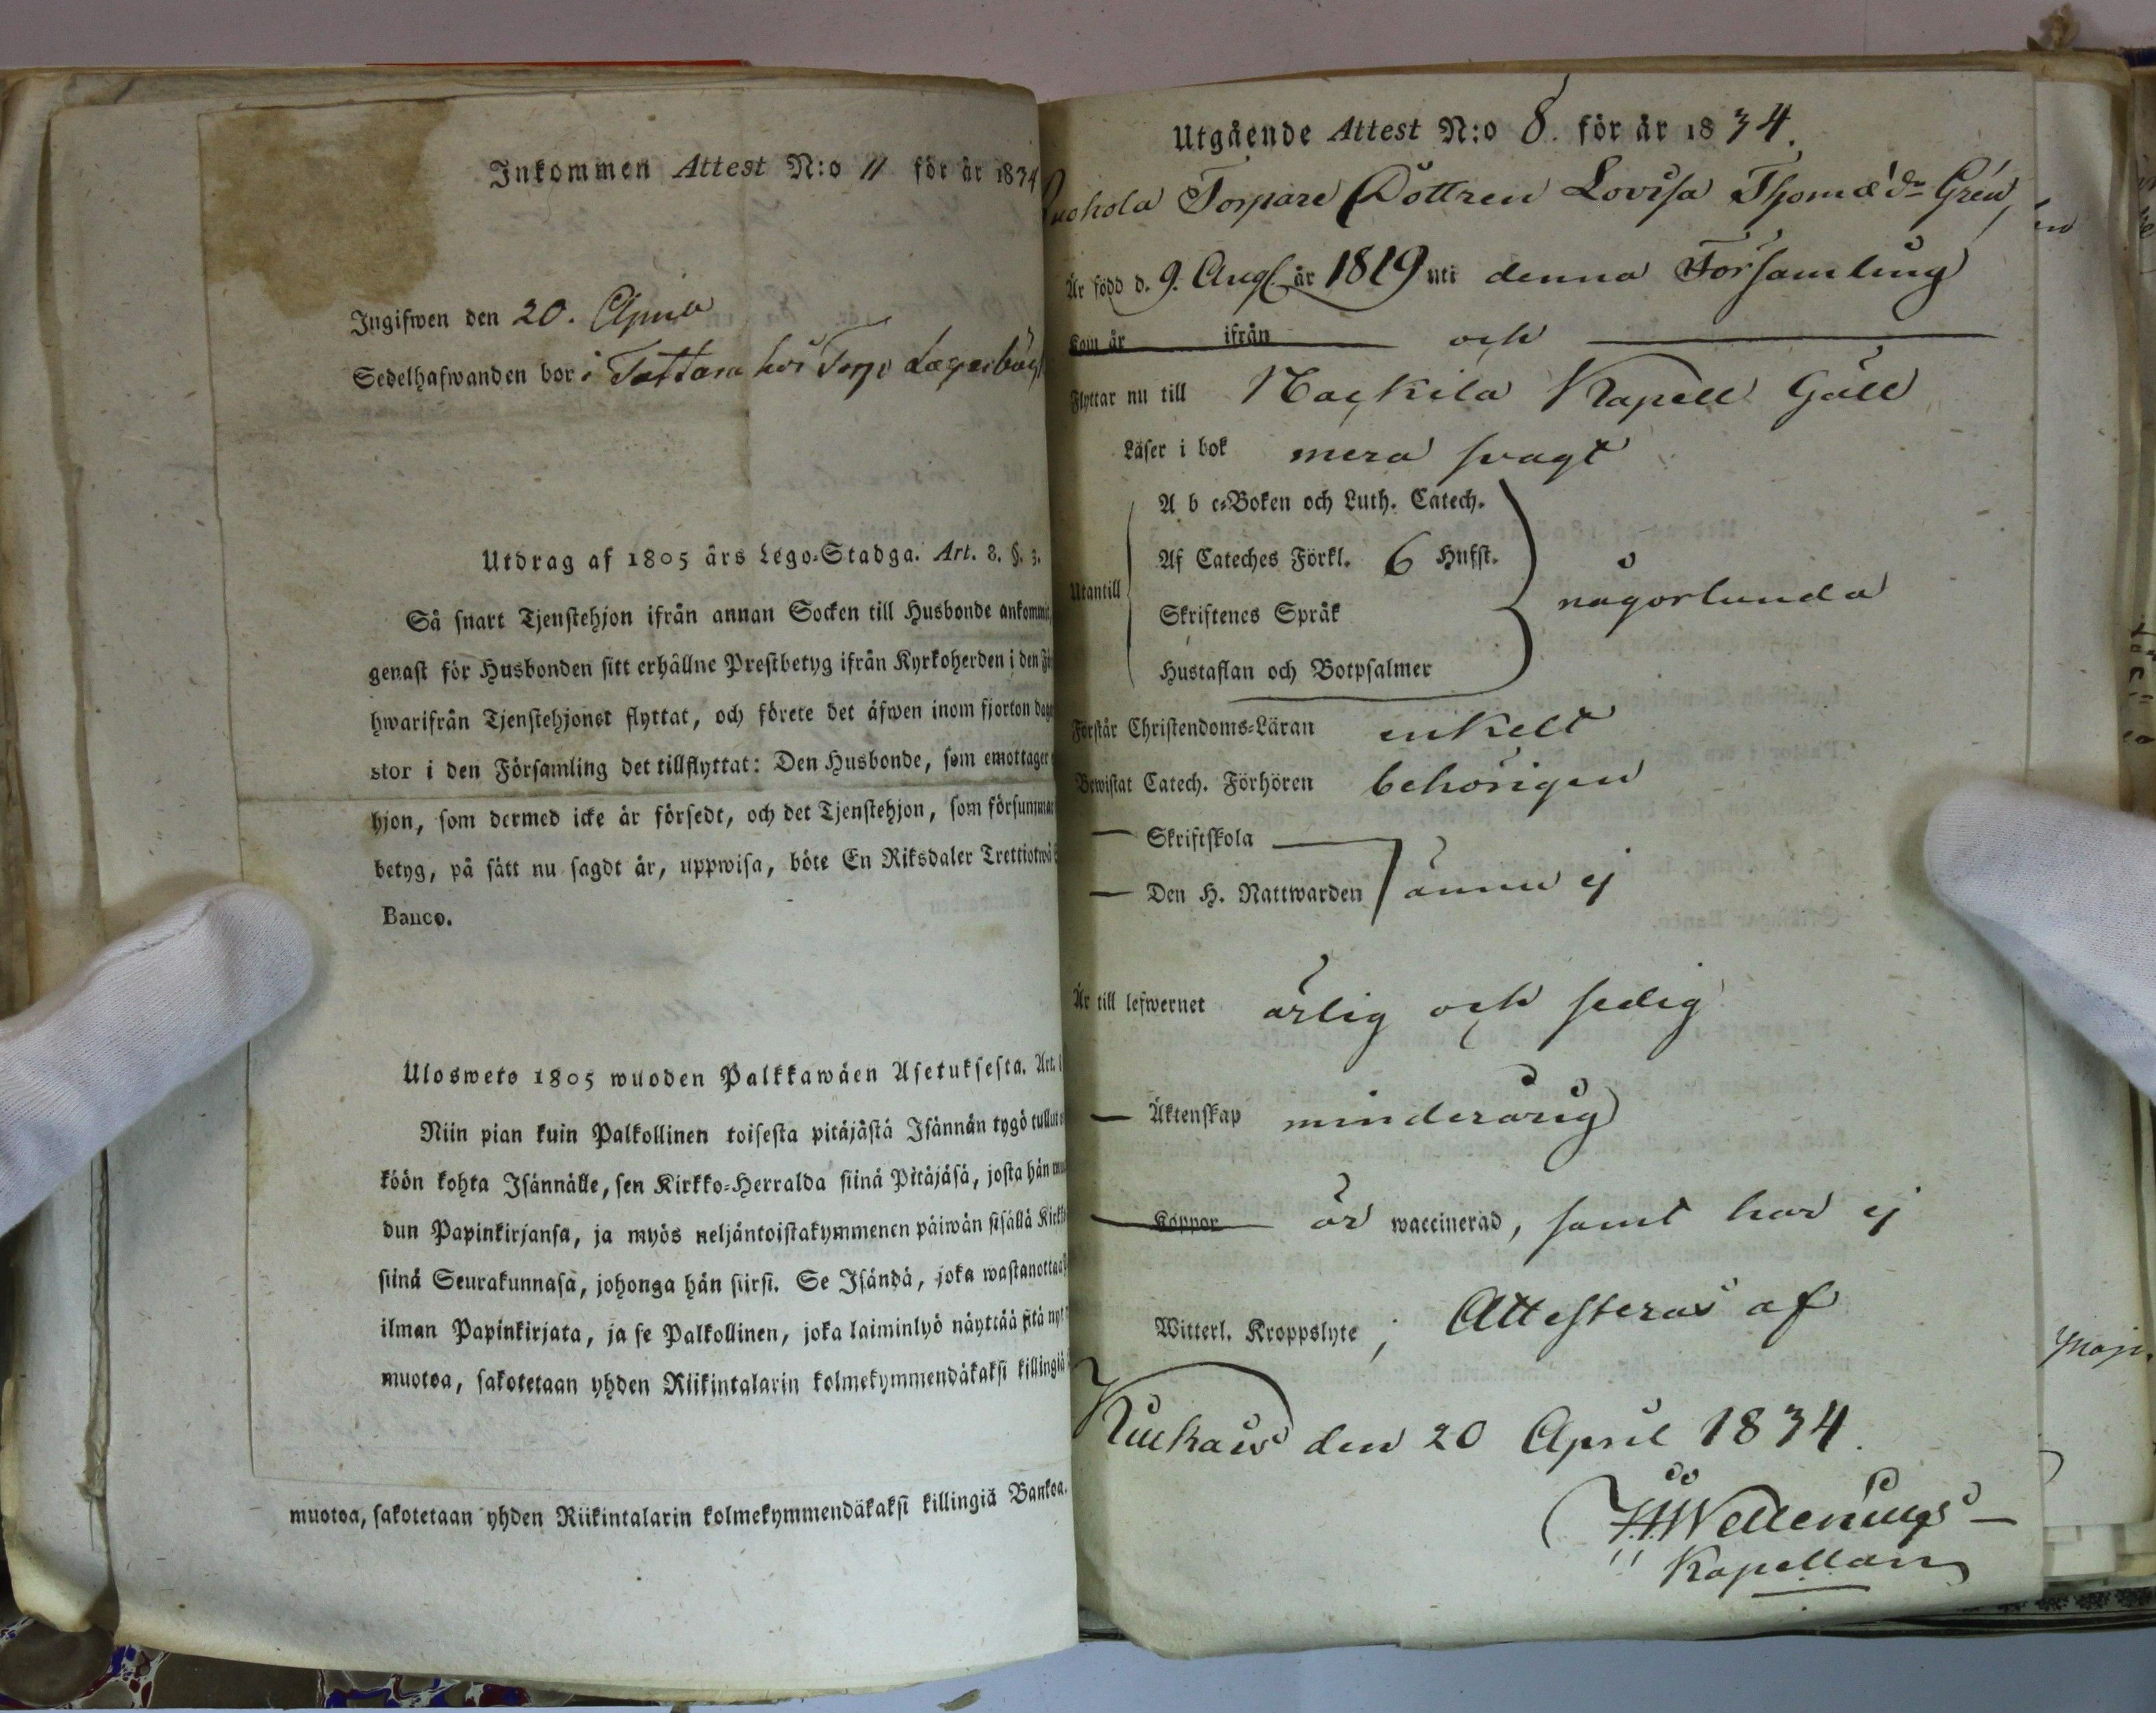 Inkommen Attest N:o 11 för år 1834
Ingifwen den 20. April
Sedelhafwanden bor i Tattara hos Torp.
Utdrag af 1805 års Lego-Stadga. Art. 8. §. 3.
Så snart Tjenstehjon ifrån annan Socken till Husbonde
genast för Husbonden sitt erhållne Prestbetyg ifrån Kyrkoherden i den
hwarifrån Tjenstehjonet flyttat, och förete det äfwen inom fjorton
stor i den Församling det tillflyttat: Den Husbonde, som emottager
hjon, som dermed icke är försedt, och det Tjenstehjon, som
betyg, på sätt nu sagdt är, uppwisa, böte En Riksdaler
Banco.
Ulosweto 1805 wuoden Palkkawäen Asetuksesta. Art.
Niin pian kuin Palkollinen toisesta pitäjästä Isännän tygö
köön kohta Isännälle, sen Kirkko-Herralda siinä Pitäjäsä, josta hän
dun Papinkirjansa, ja myös neljäntoistakymmenen päiwän sisällä
siinä Seurakunnasa, johonga hän siirsi. Se Isändä, joka
ilman Papinkirjata, ja se Palkollinen, joka laiminlyö näyttää sitä
muotoa, sakotetaan yhden Riikintalarin kolmekymmendäkaksi killingiä
muotoa, sakotetaan yhden Riikintalarin kolmekymmendäkaksi killingiä Bankoa.
Utgående Attest N:o 8. för år 1834.
Torpare Dottren Lovisa Thomæ dr Grén,
Är född d. 9. Aug. år 1819 uti denna Församling
Kom år ifrån och
Flyttar nu till Nackila Kapell Gäll
Läser i bok mera svagt
A b c-Boken och Luth. Catech.
Af Cateches Förkl. 6 Hufst.
Utantill någorlunda
Skriftenes Språk
Hustaflan och Botpsalmer
Förstår Christendoms-Läran enkelt
Bewistat Catech. Förhören behörigen
— Skriftskola
— Den H. Nattwarden ännu ej
Är till lefwernet ärlig och sedig
— Äktenskap minderårig
— Koppor är waccinerad, samt har ej
Witterl. Kroppslyte; Attesteras af
den 20 April 1834.
Kapellan